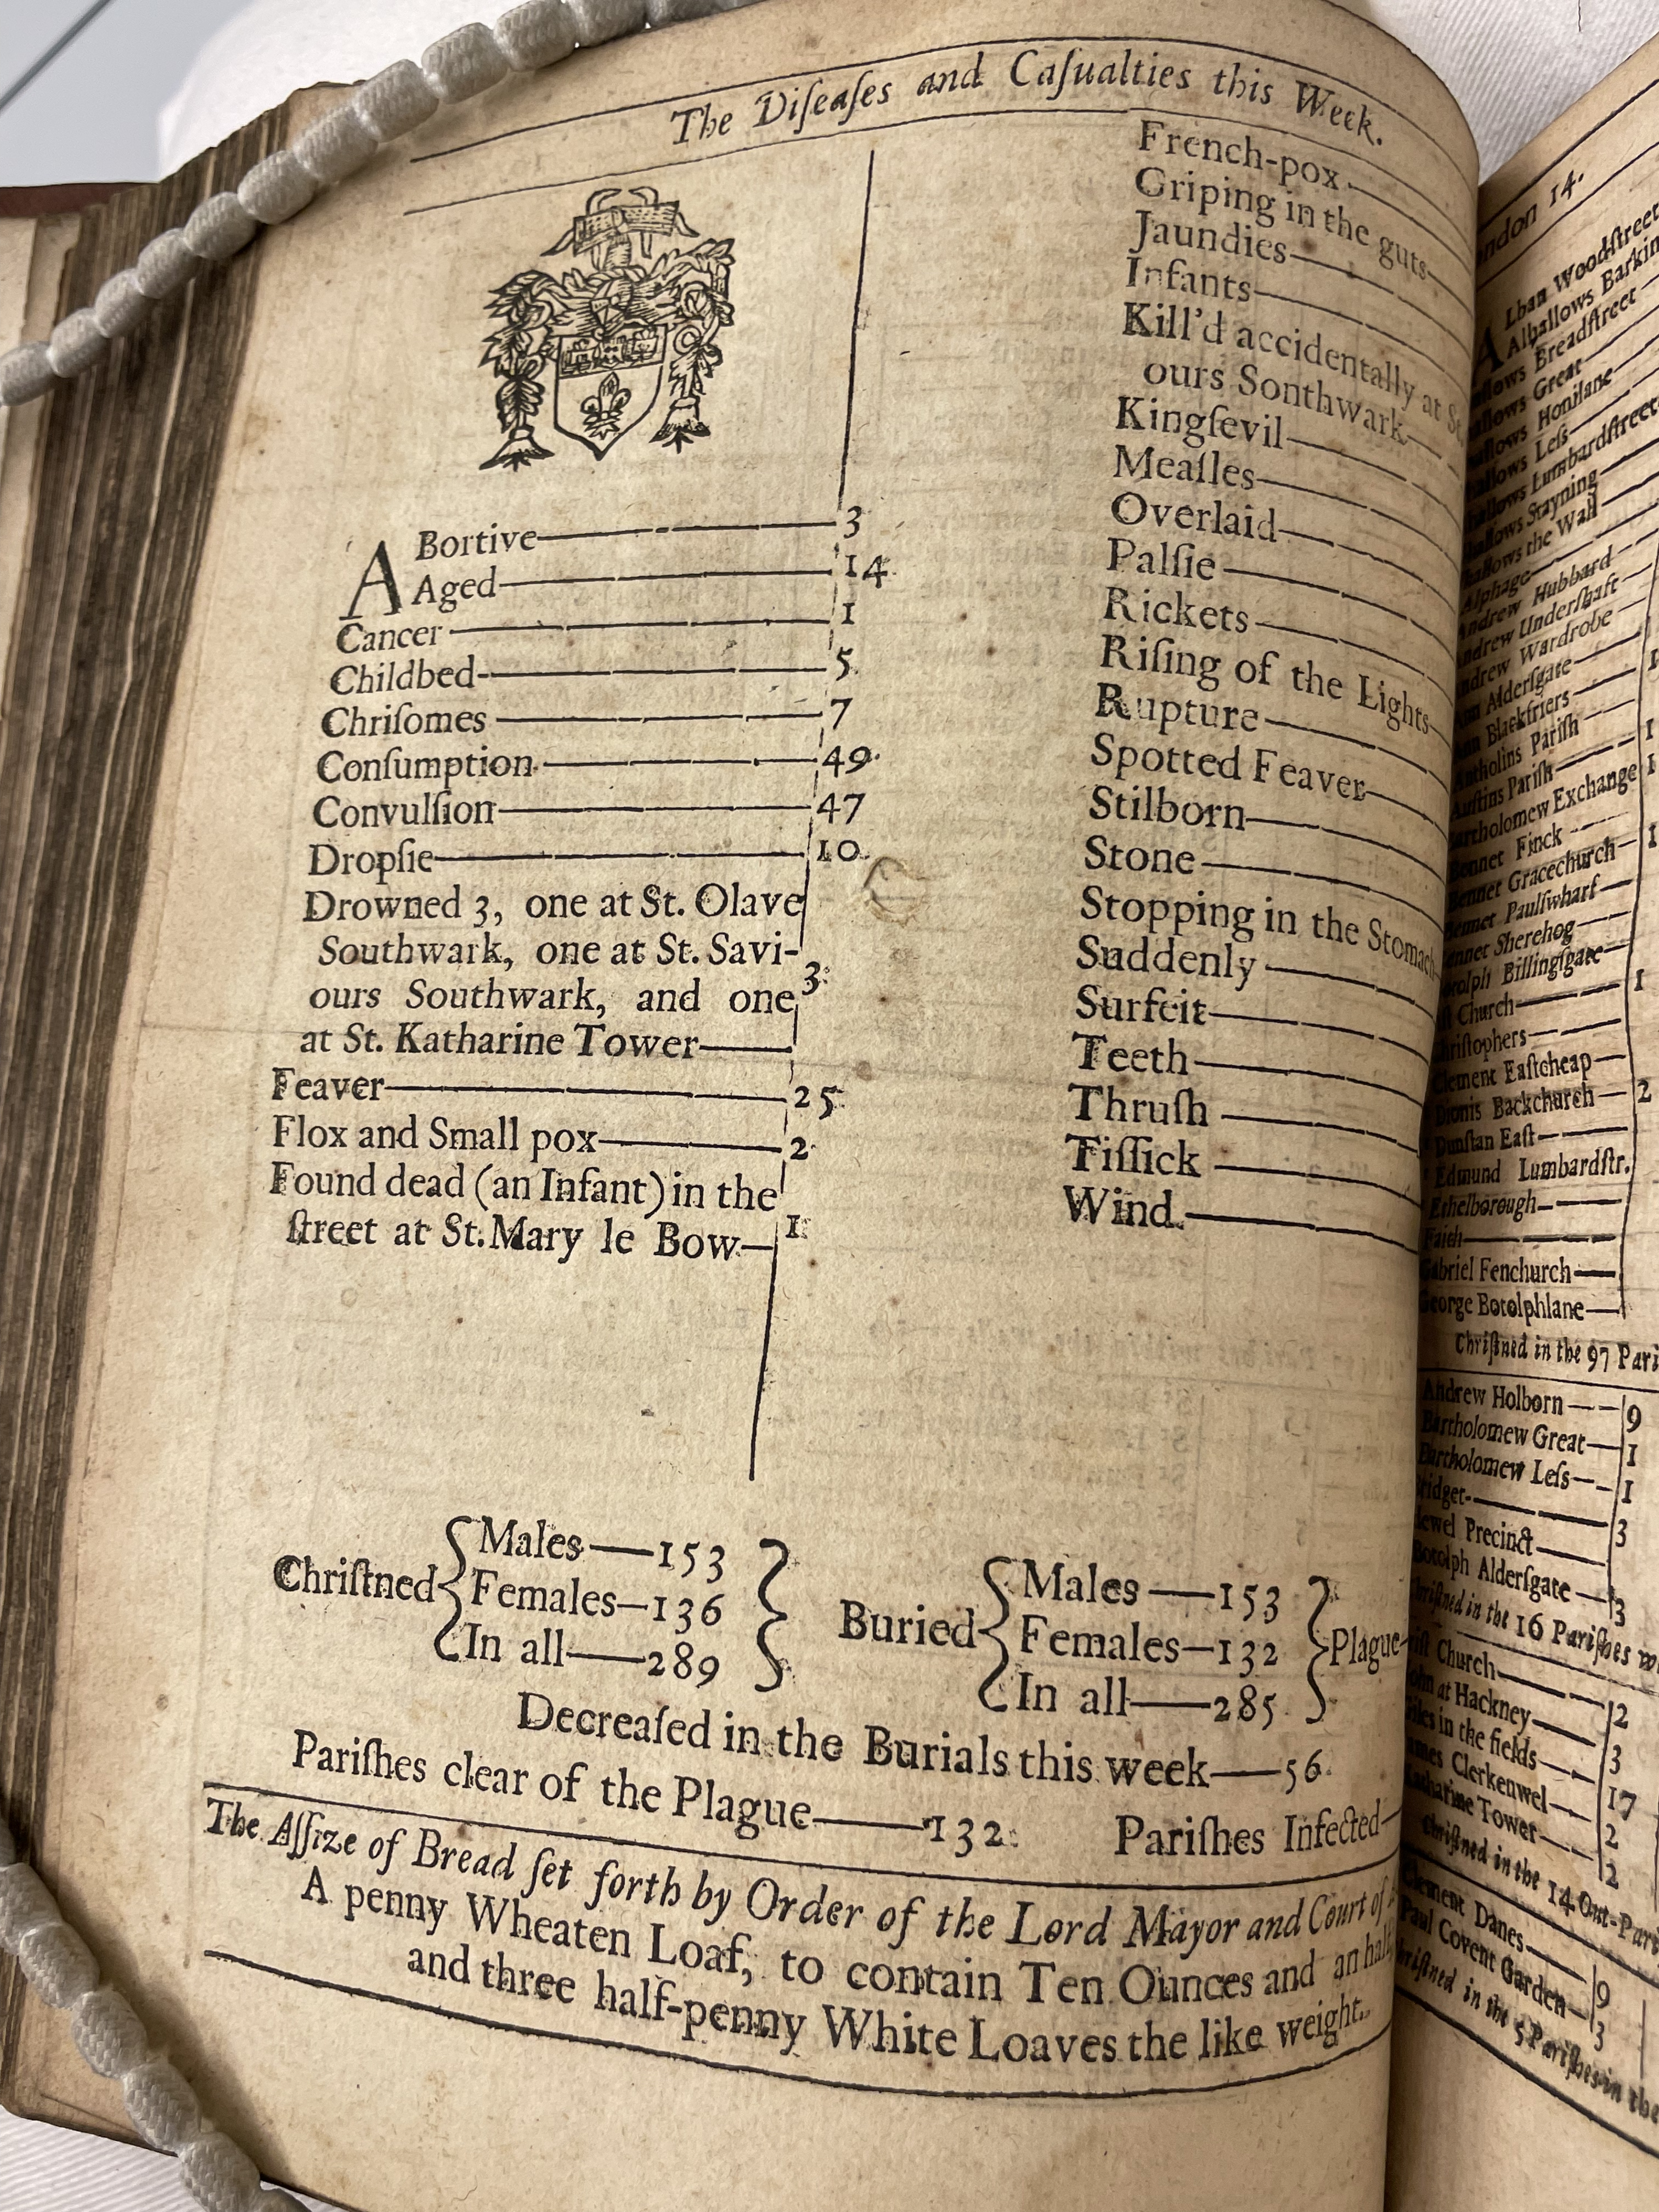 The Diſeaſes and Caſualties this Week.
ABortive 3
Aged 14
Cancer 1
Childbed 5
Chriſomes 7
Conſumption 49
Convulſion 47
Dropſie 10
Drowned 3, one at St. Olave
Southwark, one at St. Savi-
ours Southwark, and one 3
at St. Katharine Tower
Feaver 25
Flox and Small pox 2
Found dead (an Infant) in the
ſtreet at St. Mary le Bow 1
French-pox
Griping in the guts
Jaundies
Infants
Kill'd accidentally at St.
ours Sonthwark
Kingſevil
Meaſles
Overlaid
Palſie
Rickets
Riſing of the Lights
Rupture
Spotted Feaver
Stilborn
Stone
Stopping in the Stomach
Suddenly
Surfeit
Teeth
Thruſh
Tiſſick
Wind
Chriſtned
Males 153
Females 136
In all 289
Buried
Males 153
Females 132
In all 285
Plague
Decreaſed in the Burials this week 56
Pariſhes clear of the Plague 132 Pariſhes Infected
The Aſſize of Bread ſet forth by Order of the Lord Mayor and Court of
A penny Wheaten Loaf, to contain Ten Ounces and an half
and three half-penny White Loaves the like weight.
14.
Woodſtreet
Breadſtreet
Great
Honilane
Leſs
Lumbardſtreet
Stayning
the Wall
Alphage
Hubbard
Underſhaft
Wardrobe
Alderſgate
Blackfriers
Pariſh
Pariſh 1
Exchange 1
Finck
Gracechurch 1
Paulſwharf
Sherehog
Billingſgate
Church 1
Eaſtcheap
Dionis Backchurch 2
Dunſtan Eaſt
Edmund Lumbardſtr.
Ethelborough
Faith
Fenchurch
Botolphlane
Chriſtned in the 97
Andrew Holborn 9
Bartholomew Great 1
Bartholomew Leſs 1
3
Precinct
Botolph Alderſgate 3
in the 16 Pariſhes
Church 2
at Hackney 3
in the fields 17
Clerkenwel 2
Tower 2
Chriſtned in the 14 Out-
Clement Danes 9
Paul Covent Garden 3
in the 5 Pariſhes in the